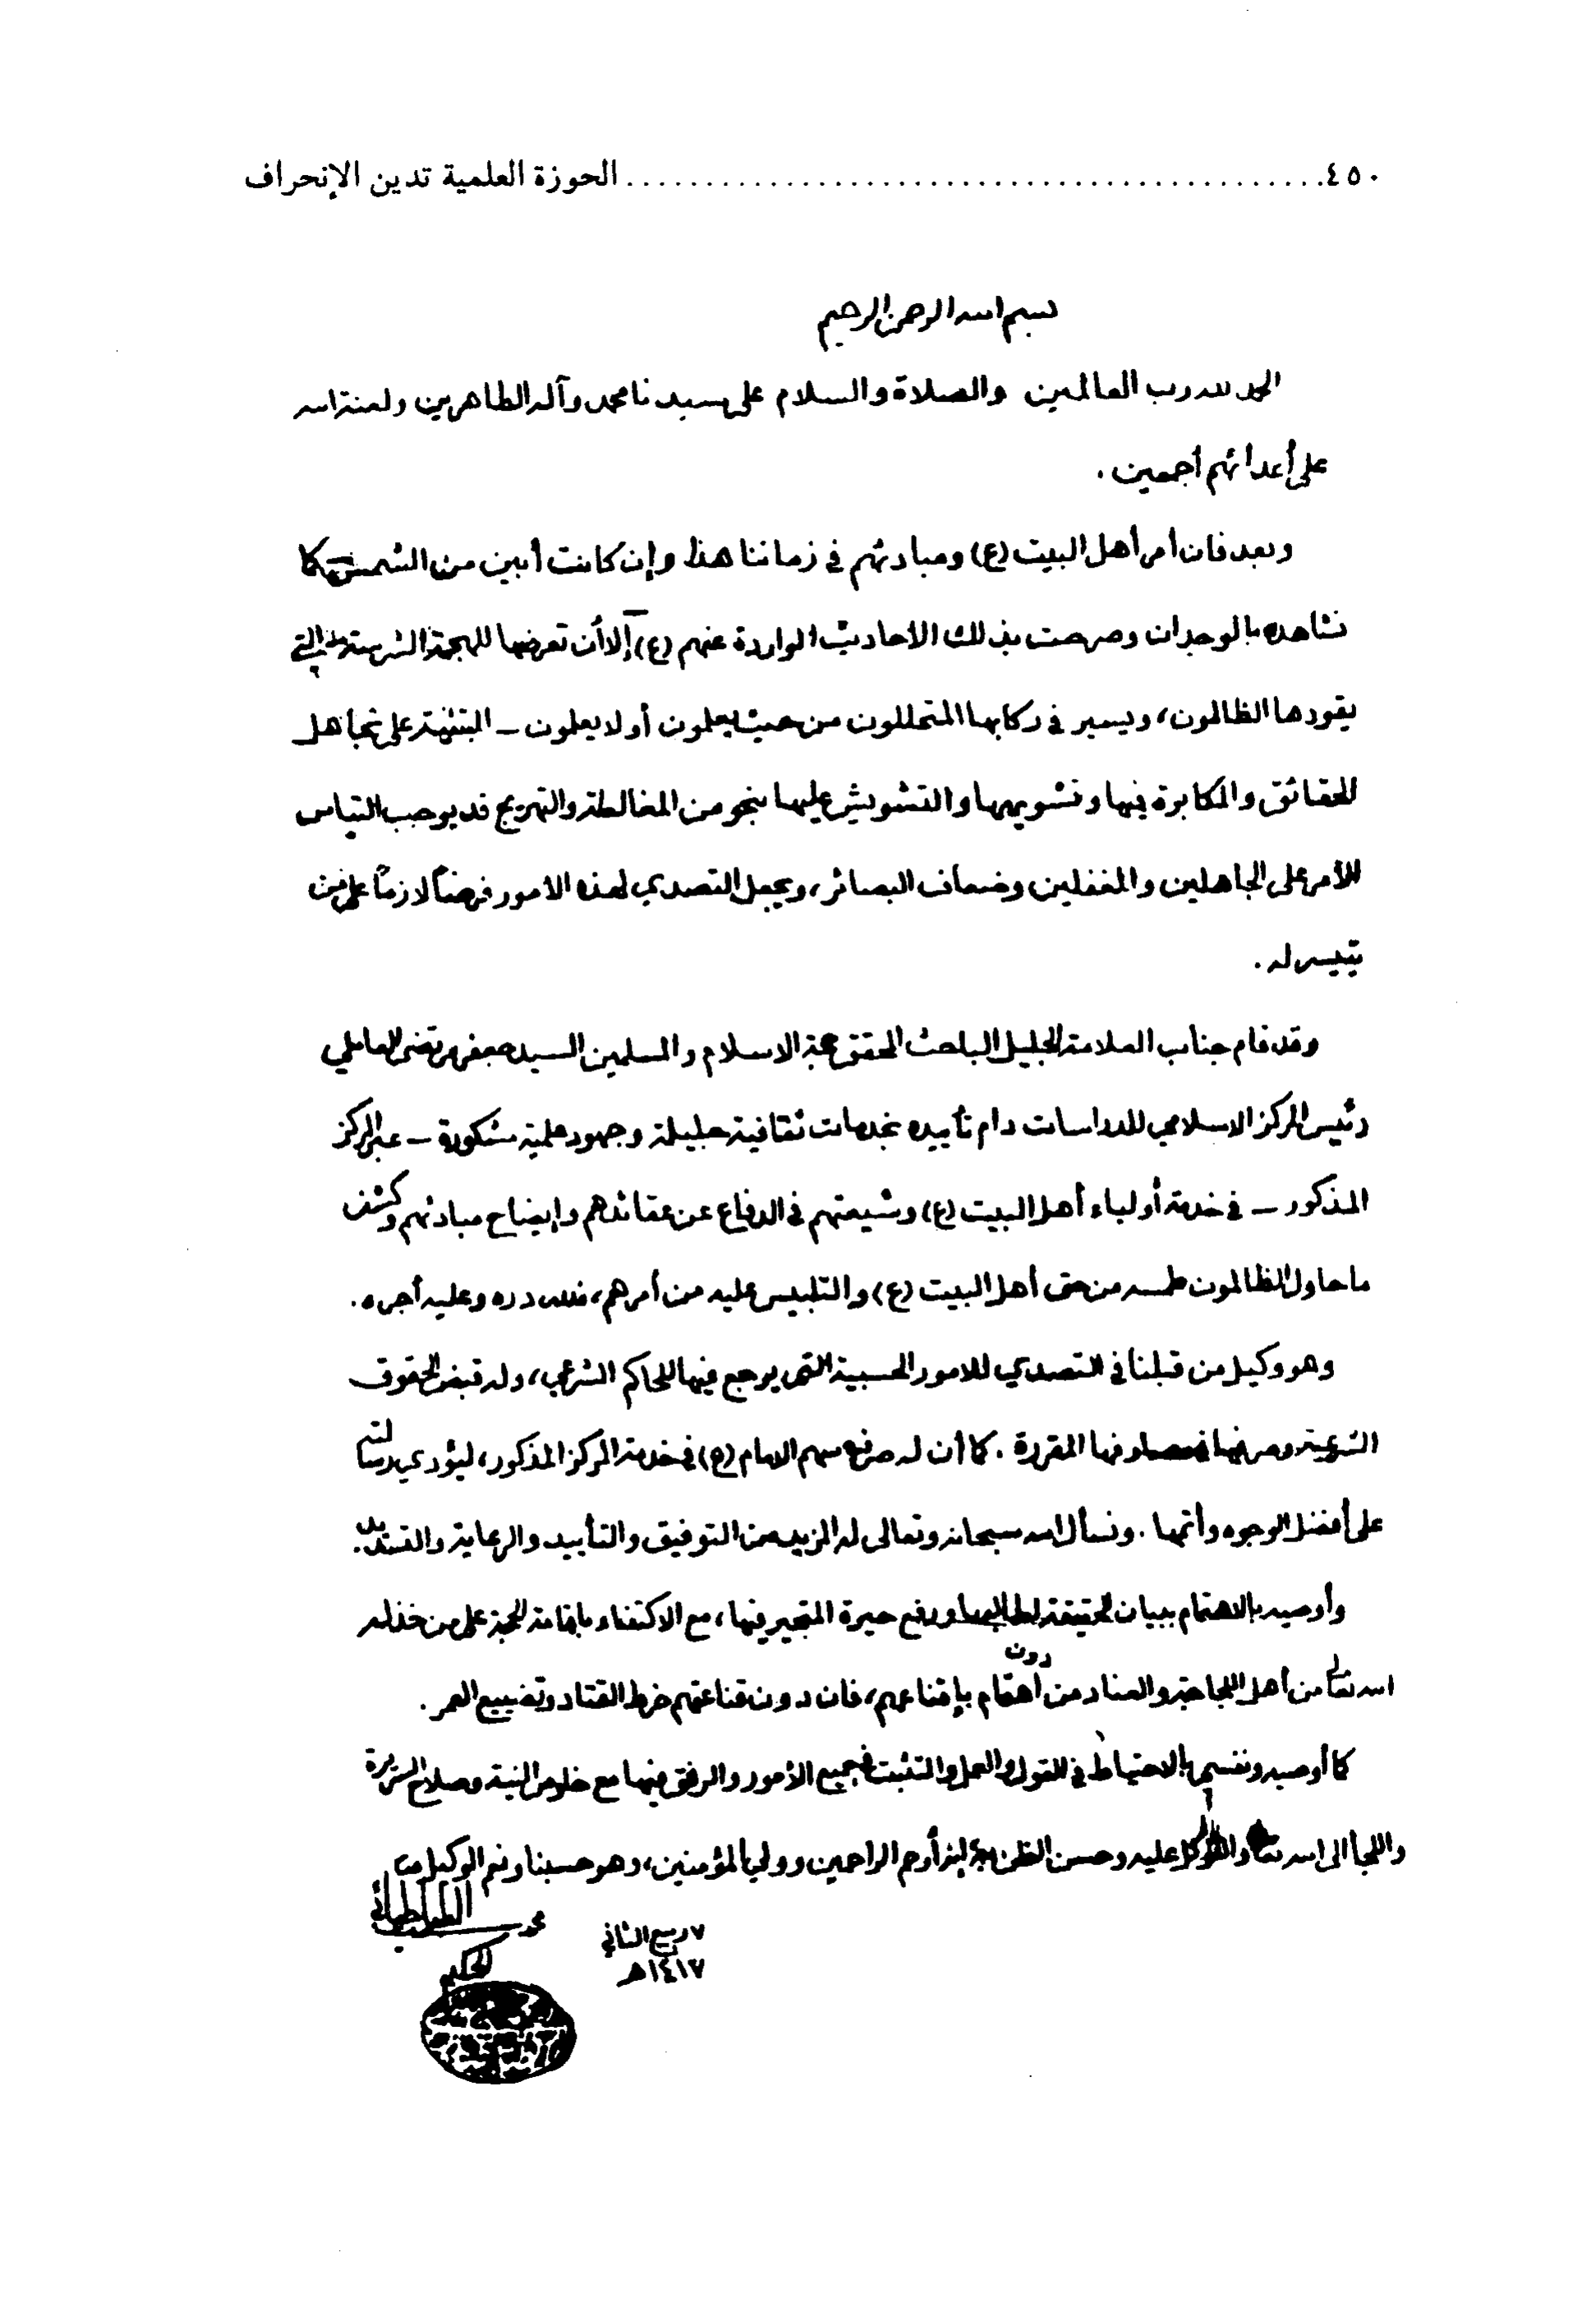 ٤٥٠ ............................................ الحوزة العلمية تدين الإنحراف
بسم الله الرحمن الرحيم
الحمد لله رب العالمين والصلاة والسلام على سيدنا محمد وآله الطاهرين ولعنة الله
على أعدائهم أجمعين .
وبعد فان أمر أهل البيت (ع) ومبادئهم في زماننا هذا وإن كانت أبين من الشمس كما
نشاهده بالوجدان وصرحت بذلك الأحاديث الواردة عنهم (ع) إلا أن تعرضها للهجمة الشرسة التي
يقودها الظالمون، ويسير في ركابها المتحللون من حيث يعلمون أو لا يعلمون – المبتنية على تجاهل
الحقائق والمكابرة فيها وتشويهها والتشويش عليها بنحو من المغالطة والتهريج قد يوجب التباس
الأمر على الجاهلين والمغفلين وضعاف البصائر، ويجعل التصدي لهذه الأمور فرضاً لازماً على من
يتيسر له .
وقد قام جناب العلامة الجليل الباحث المحقق حجة الاسلام والمسلمين السيد جعفر مرتضى العاملي
رئيس المركز الاسلامي للدراسات دام تأييده بخدمات ثقافية جليلة وجهود علمية مشكورة – عبر المركز
المذكور – في خدمة أولياء أهل البيت (ع) وشيعتهم في الدفاع عن عقائدهم وإيضاح مبادئهم وكشف
ما حاول الظالمون طمسه من حق أهل البيت (ع) والتلبيس عليه من أمرهم، فلله دره وعليه أجره .
وهو وكيل من قبلنا في التصدي للامور الحسبية التي يرجع فيها للحاكم الشرعي، وله قبض الحقوق
الشرعية وصرفها في مصارفها المقررة . كما أن له صرف سهم الامام (ع) في خدمة المركز المذكور، ليؤدي رسالته
على أفضل الوجوه وأتمها . ونسأل الله سبحانه وتعالى له المزيد من التوفيق والتأييد والرعاية والتسديد .
وأوصيه بالاهتمام ببيان الحقيقة لطالبها ورفع حيرة المتحير فيها، مع الاكتفاء بإقامة الحجة على من خذله
الله تعالى من أهل اللجاجة والعناد من دون اهتمام بإقناعهم، فان دون قناعتهم خرط القتاد وتضييع العمر .
كما أوصيه ونفسي بالاحتياط في القول والعمل والتثبت في جميع الأمور والرفق فيها مع خلوص النية وصلاح السريرة
واللجأ الى الله تعالى والتوكل عليه وحسن الظن به إنه أرحم الراحمين وولي المؤمنين، وهو حسبنا ونعم الوكيل
محمد سعيد الطباطبائي
الحكيم
٧ ربيع الثاني
١٤١٧هـ